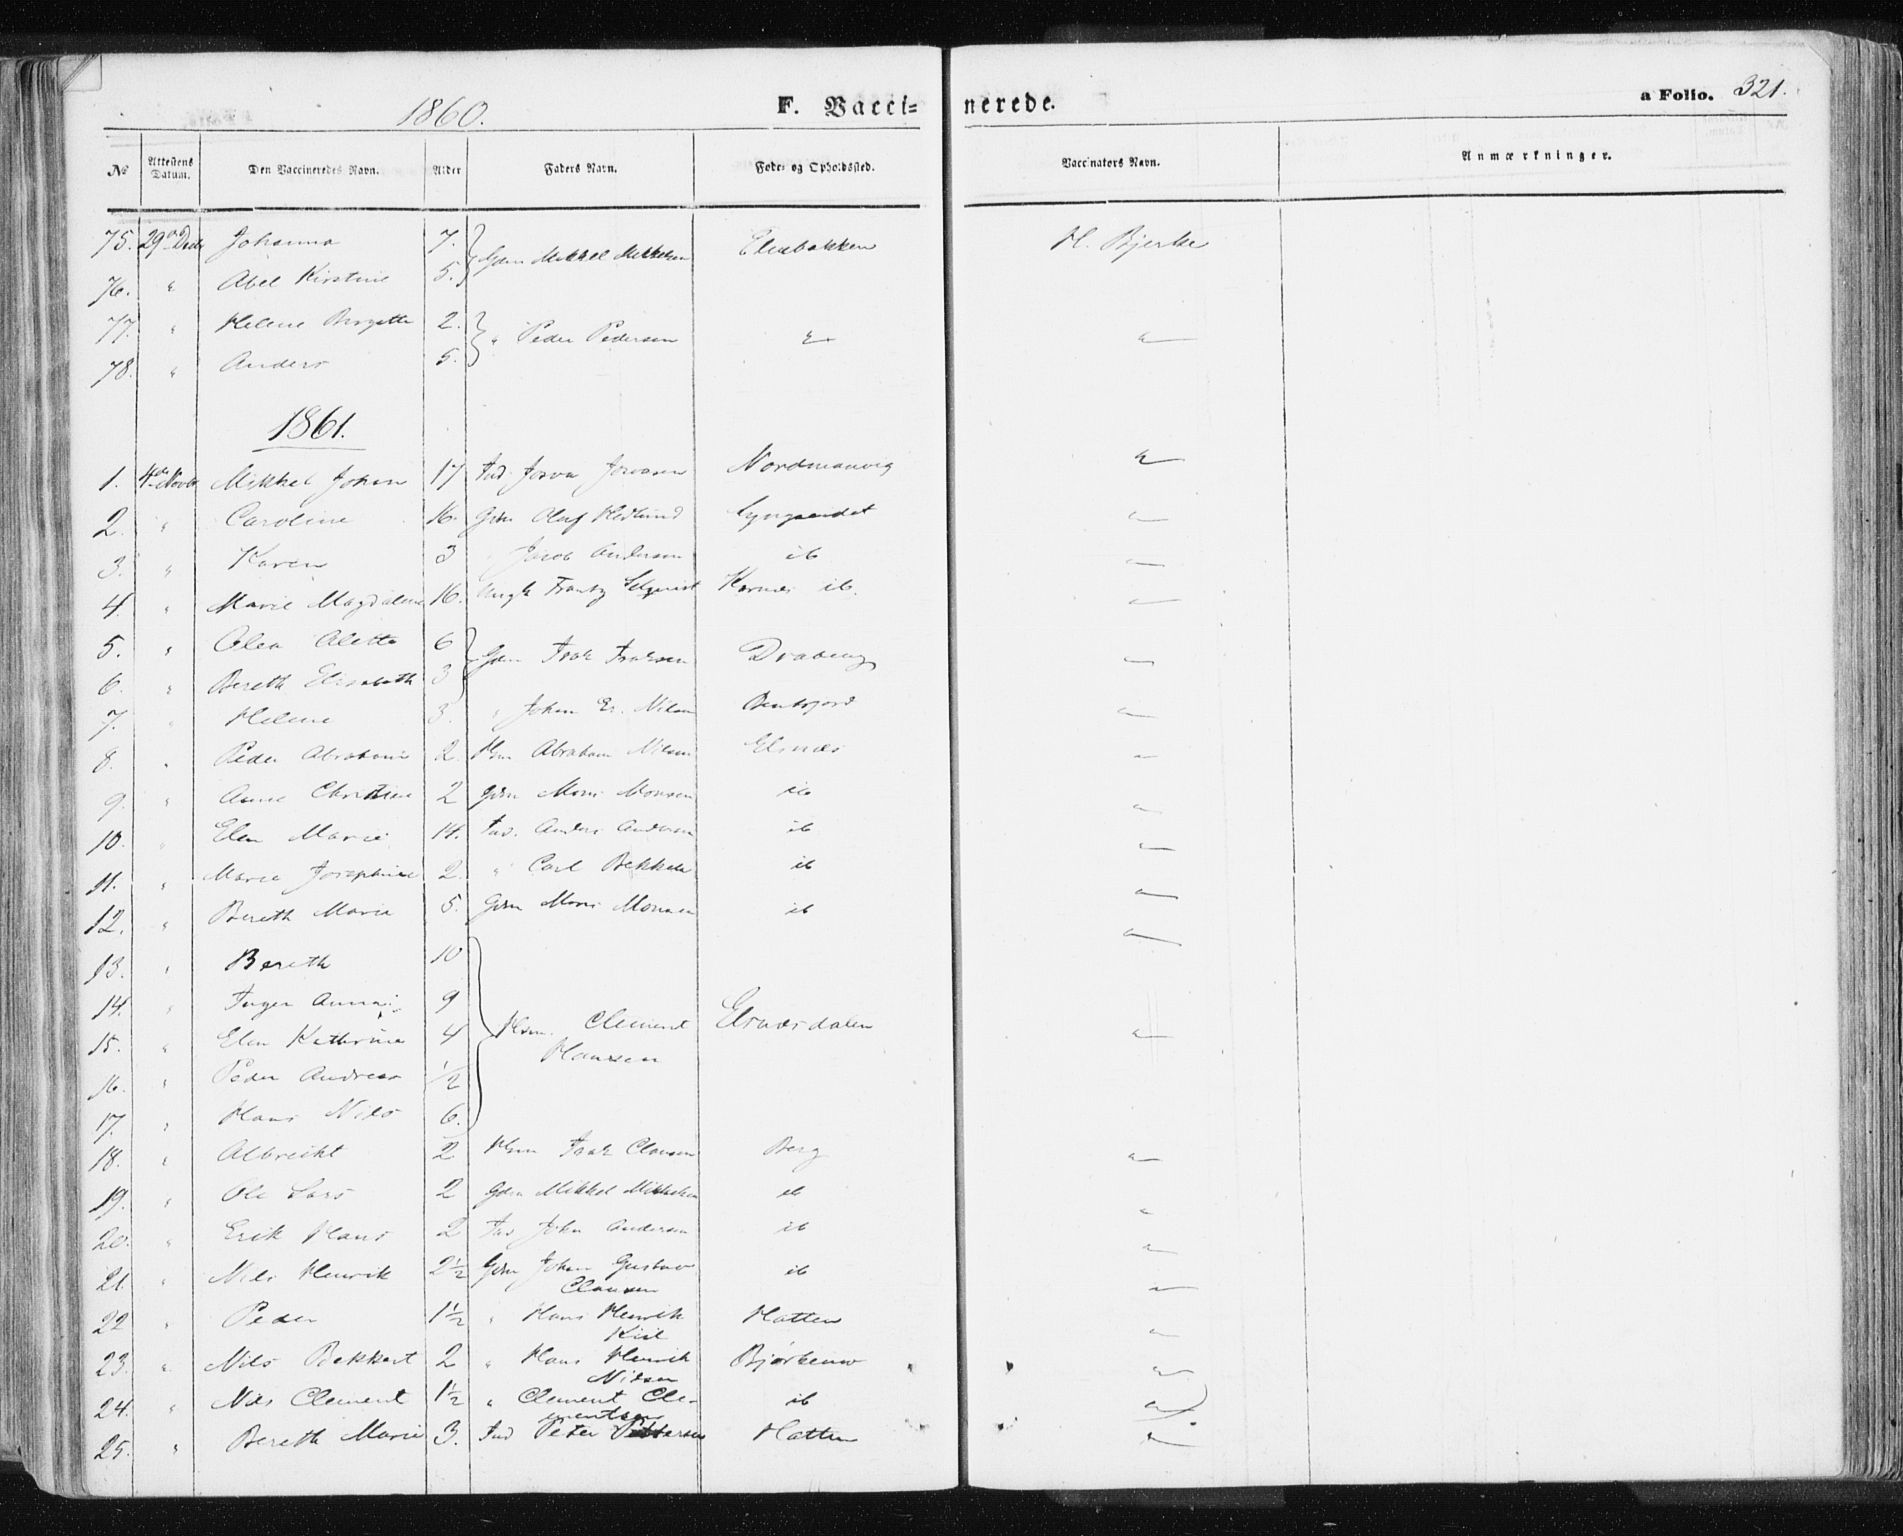 1860.
F. Vaccinerede.
a Folio. 321.
No Attestens Datum. Den Vaccineredes Navn. Alder Faders Navn. Føde- og Opholdssted. Vaccinators Navn. Anmærkninger.
75. 29 Decbr Johanna 7. Gdm Mikkel Mikkelsen Elvebakken H. Bjerke
76. " Abel Kirstine 5.
77. " Helene Birgitte 2. " Peder Pedersen " "
78. " Anders 5.
1861.
1. 4de Novbr Mikkel Johan 17 Ind. Josva Josvasen Nordmanvig "
2. " Caroline 16. Gdm Olaf Hedlund Lyngseidet "
3. " Karen 3 " Jacob Andersen ib "
4. " Marie Magdalena 16. Frantz Kornes ib. "
5. " Olea Aletta 6 Gdm Isak Isaksen "
6. " Bereth Elisabeth 3
7. " Helene 3. " Johan Er. Nilsen "
8. " Peder Abraham 2. Hsm Abraham Nilsen Elsnæs "
9. " Anne Christine 2 Gdm Mons Monsen ib "
10. " Elen Marie 14. Ind. Anders Andersen ib "
11. " Marie Josephine 2. " Carl ib "
12. " Bereth Marie 5. Gdm Mons Monsen ib "
13. " Bereth 10
14. " Inger Anna 9
15. " Elen Kathrine 4 Hsm. Clement Hansen Elsnæsdalen "
16. " Peder Andreas 1/2
17. " Hans Nils 6.
18. " Albrecht 2 Hsm Isak Clausen Berg "
19. " Ole Lars 2 Gdm Mikkel Mikkelsen ib "
20. " Erik Hans 2 Ind John Andersen ib "
21. " Nils Henrik 2 1/2 Gdm Johan Gustav Clausen ib "
22 " Peder 1 1/2 " Hans Henrik Kiil Hatten "
23. " Nils Bekkert 2 " Hans Henrik Nilsen "
24. " Nils Clement 1 1/2 " Clement Clementsen ib "
25. " Bereth Marie 3. Ind Peter Hatten "